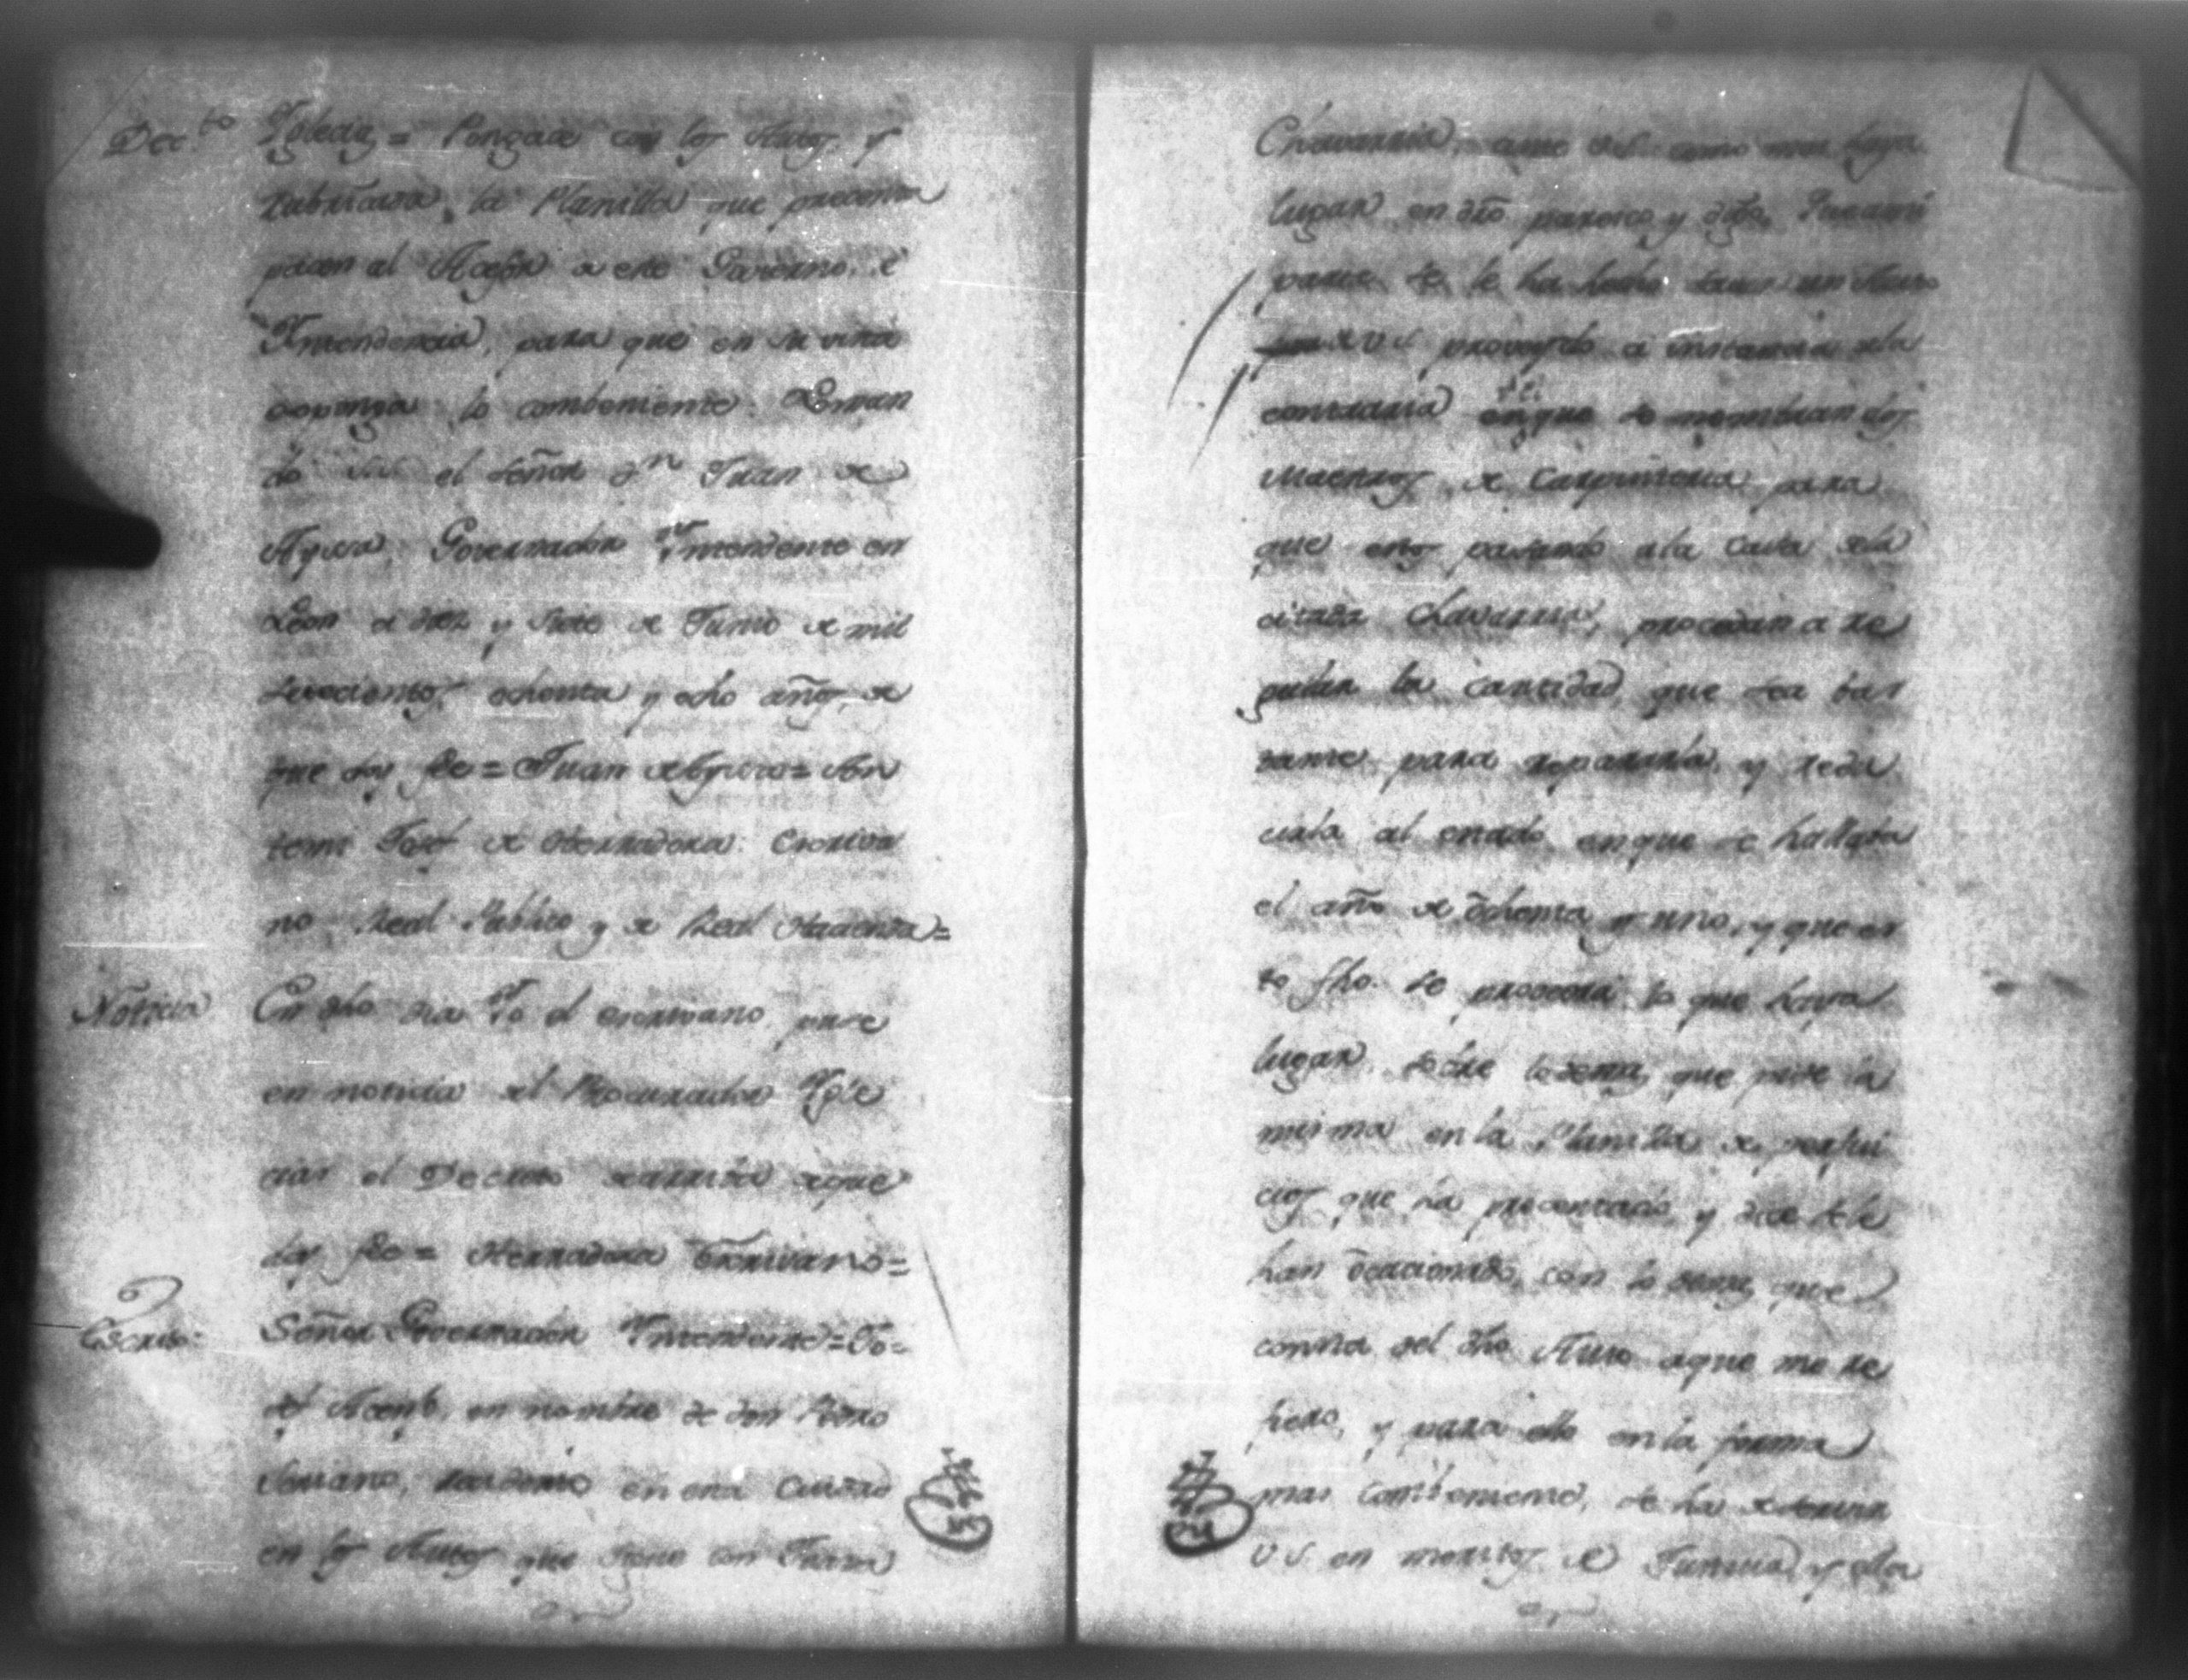 Dec.to Yglecias = Pongase con los Autos, y
rubricada, la Planilla que precenta
pasen al Acesor de este Govierno, é
Yntendencia, para que en su vista
exponga lo combeniente. Lo man
dó Su el Señor Dn Juan de
Ayssa, Governador Yntendente en
Leon a diez y siete de Junio de mil
setecientos ochenta y ocho años, de
que doy fee = Juan de Ayssa = An
temi José de Herradora. Escriva
no Real Publico y de Real Hacienda =
Noticia En dho dia Yo el escrivano puse
en noticia del Procurador Ygle
cias el Decreto de arriba de que
doy fee = Herradora Escrivano =
Escrito: Señor Governador Yntendente = Jo-
sef Acenjo, en nombre de don Pedro
Soriano, vecino en esta Ciudad
en los Autos que sigue con Juana
Chavarria, ante VS. como mas haya
lugar en dro paresco y digo, Que a mi
parte se le ha hecho saver un Auto
de VS. proveydo a instancia dela
contraria en que se nombran dos
Maestros de Carpinteria para
que estos pasando ala Casa dela
citada Chavarria, procedan a re
gular la cantidad que sea bas
tante para repararla, y redu
cirla al estado en que se hallaba
el año de ochenta y uno, y que es
to fho. se proveerá lo que haya
lugar sobre lo demas que pide la
misma en la Planilla de perjui
cios que ha precentado, y dice se le
han ocacionado, con lo demas que
consta del dho Auto a que me re
fiero, y para ello en la forma
mas combeniente, se ha de servir
VS. en meritos de Justicia, y de la